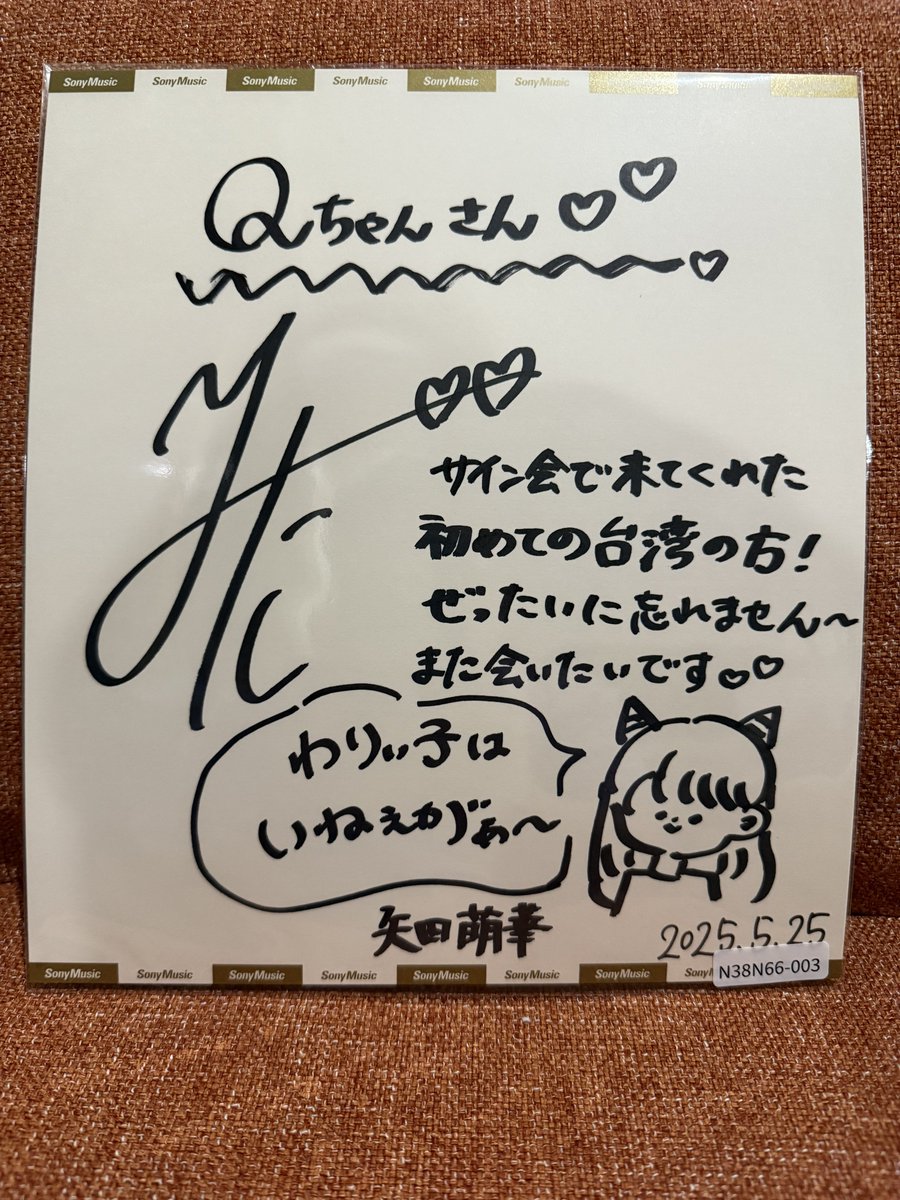 SonyMusic SonyMusic SonyMusic SonyMusic SonyMusic SonyMusic SonyMusic
Qちゃんさん♡♡
♡
♡♡
サイン会で来てくれた
初めての台湾の方!
ぜったいに忘れません~
また会いたいです♡♡
わりぃ子は
いねぇがぁ~
矢田萌華
2025.5.25
SonyMusic SonyMusic SonyMusic SonyMusic SonyMusic SonyMusic SonyMusic
N38N66-003